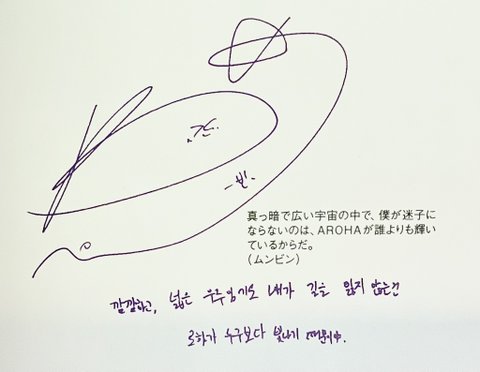 -빈-
真っ暗で広い宇宙の中で、僕が迷子に
ならないのは、AROHAが誰よりも輝い
ているからだ。
(ムンビン)
깜깜하고, 넓은 우주임에도 내가 길을 잃지 않는건
로하가 누구보다 빛나기 때문이야.